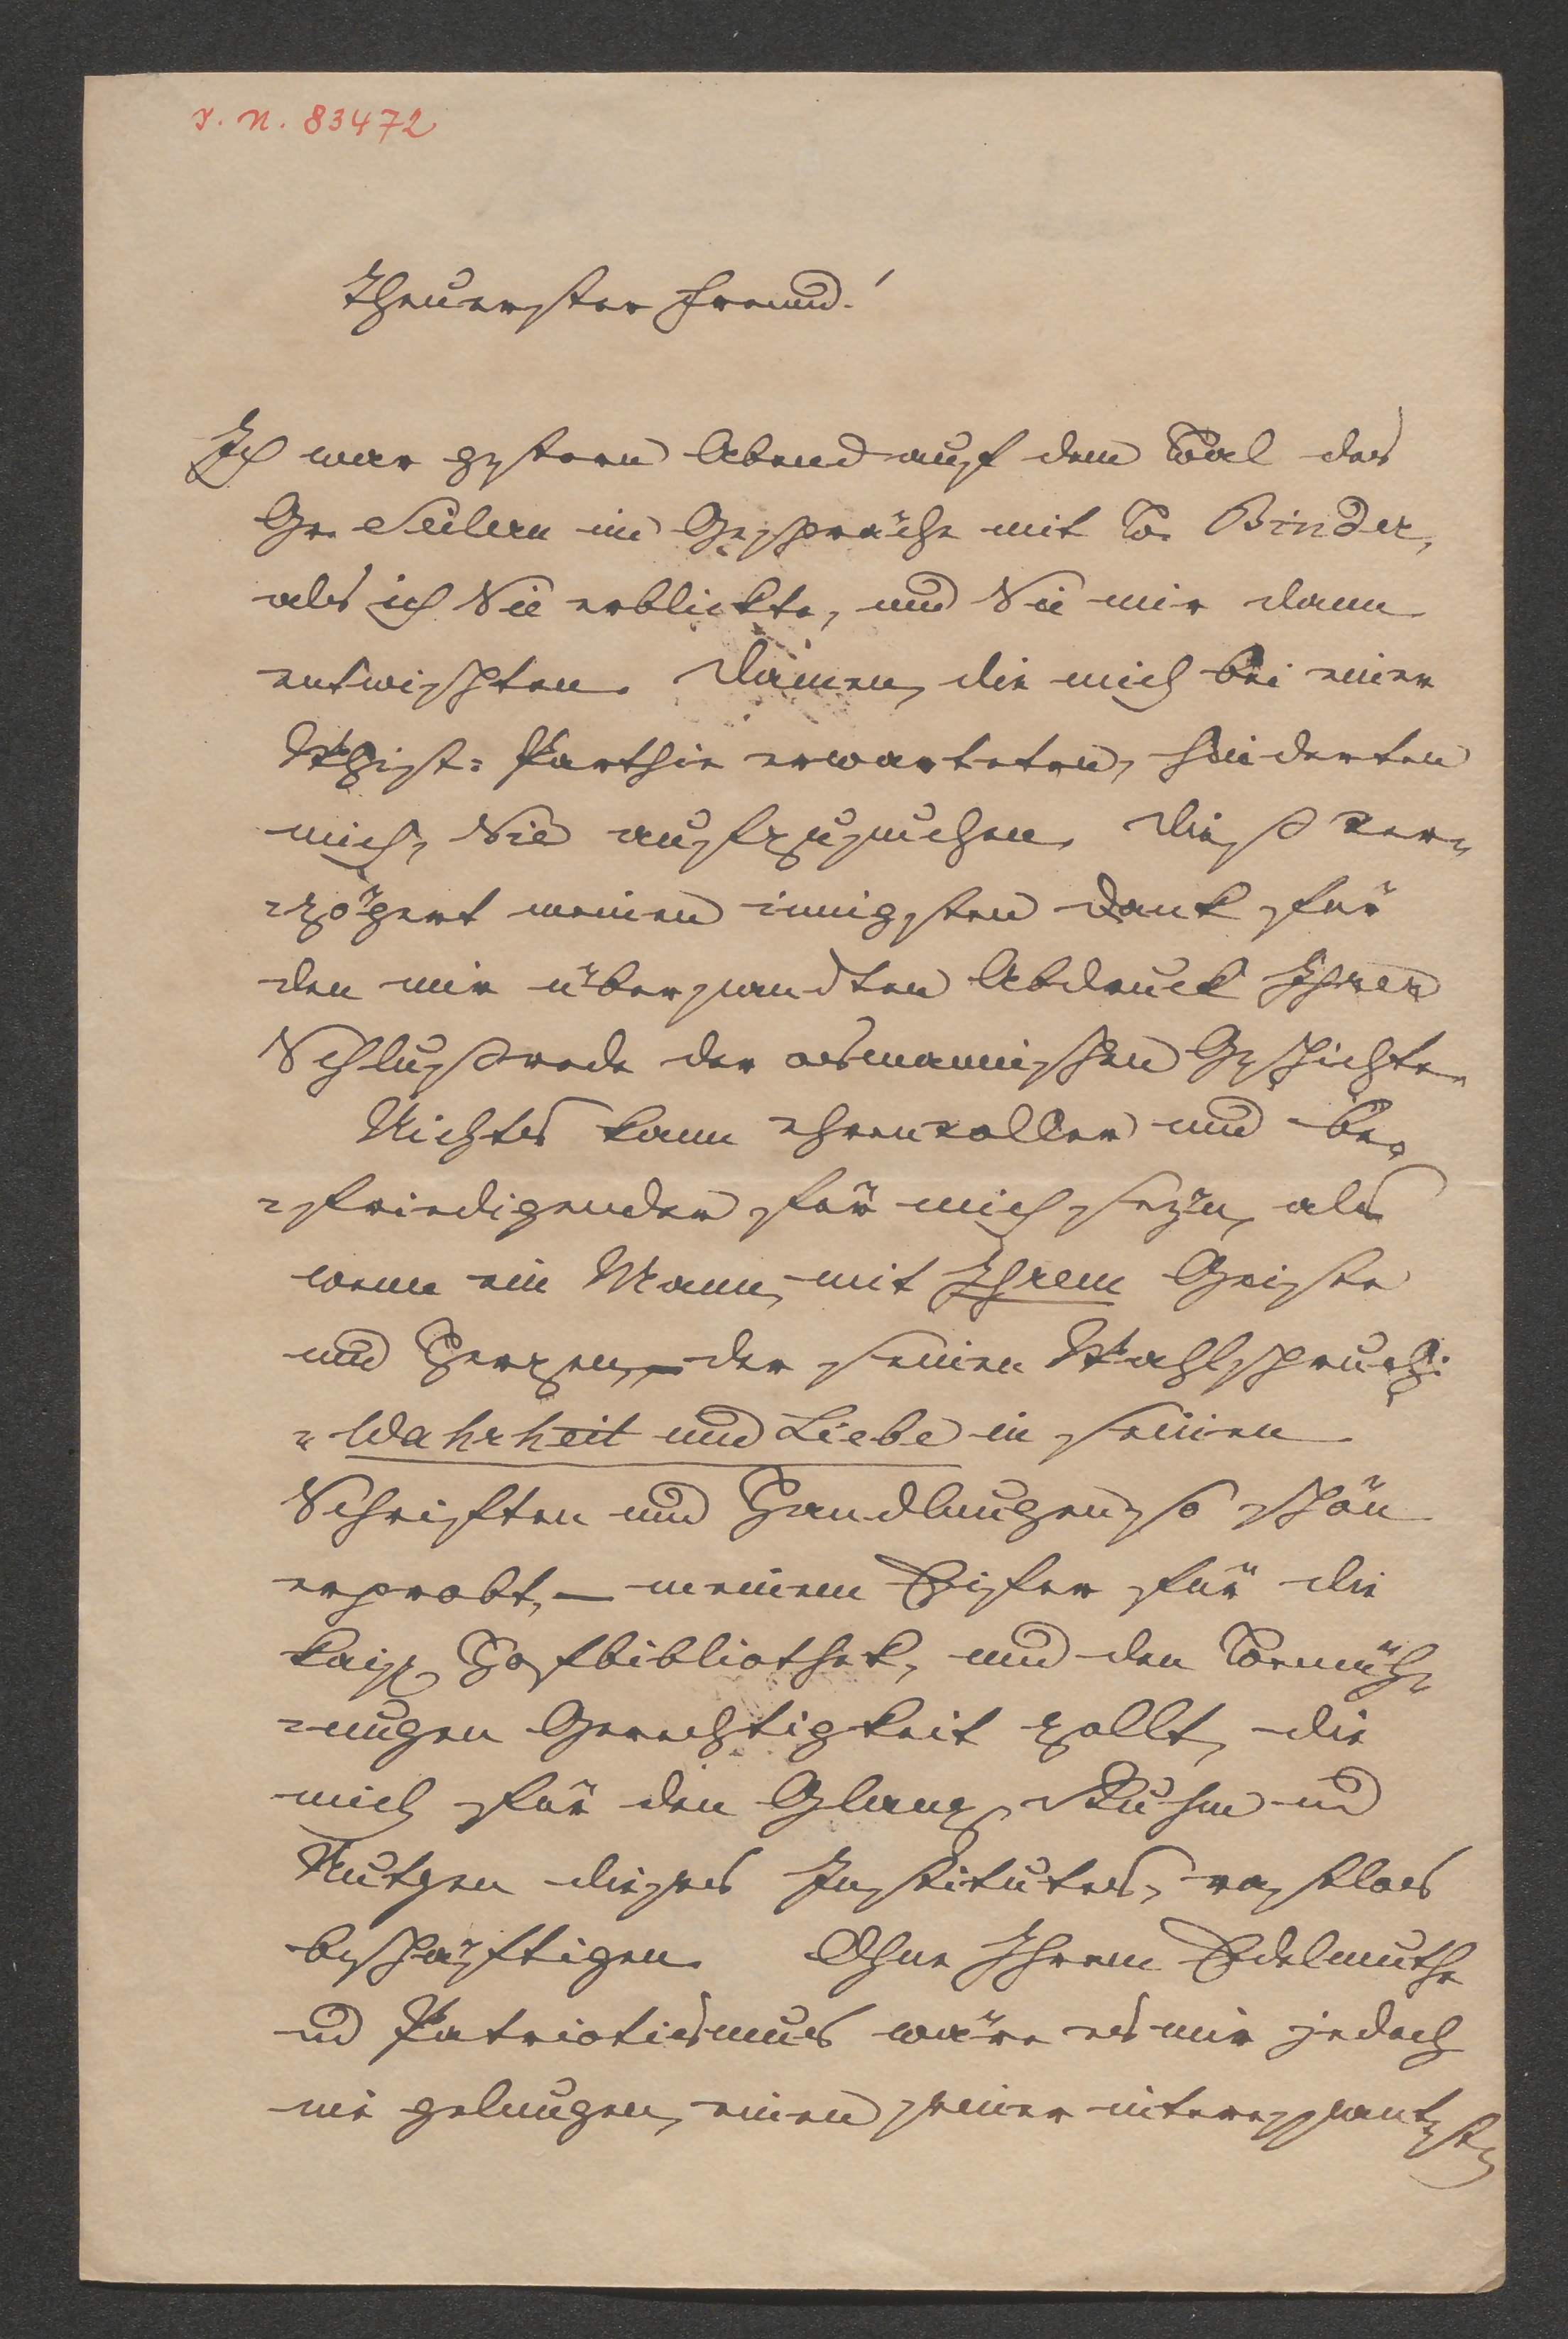 I. N. 83472
Theuerster Freund!
Ich war gestern Abend auf dem Bal des
Gr. Seilern im Gespräche mit B. Binder,
als ich Sie erblickte, und Sie mir dann
entwischten. Damen, die mich bei einer
Whist-Parthie erwarteten, hinderten
mich, Sie aufzusuchen. Dieß ver-
-zögert meinen innigsten Dank für
den mir übersandten Abdruck Ihrer
Schlußrede der osmanischen Geschichte.
Nichts kann ehrenvoller und be-
-friedigender für mich seyn, als
wenn ein Mann, mit Ihrem Geiste
und Herzen, – der seinen Wahlspruch:
"Wahrheit und Liebe in seinen
Schriften und Handlungen so schön
erprobt, – meinem Eifer für die
kais. Hofbibliothek, und den Bemüh-
-ungen Gerechtigkeit zollt, die
mich für den Glanz, Ruhm und
Nutzen dieses Institutes, rastlos
beschäftigen. Ohne Ihrem Edelmuthe
und Patriotismus wäre es mir jedoch
nie gelungen, einen seiner interessantesten